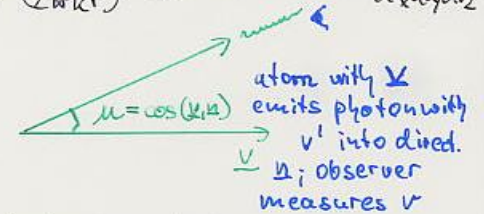 μ=cos(v,n)
v
atom with v
emits photon with
ν' into direct.
n; observer
measures ν